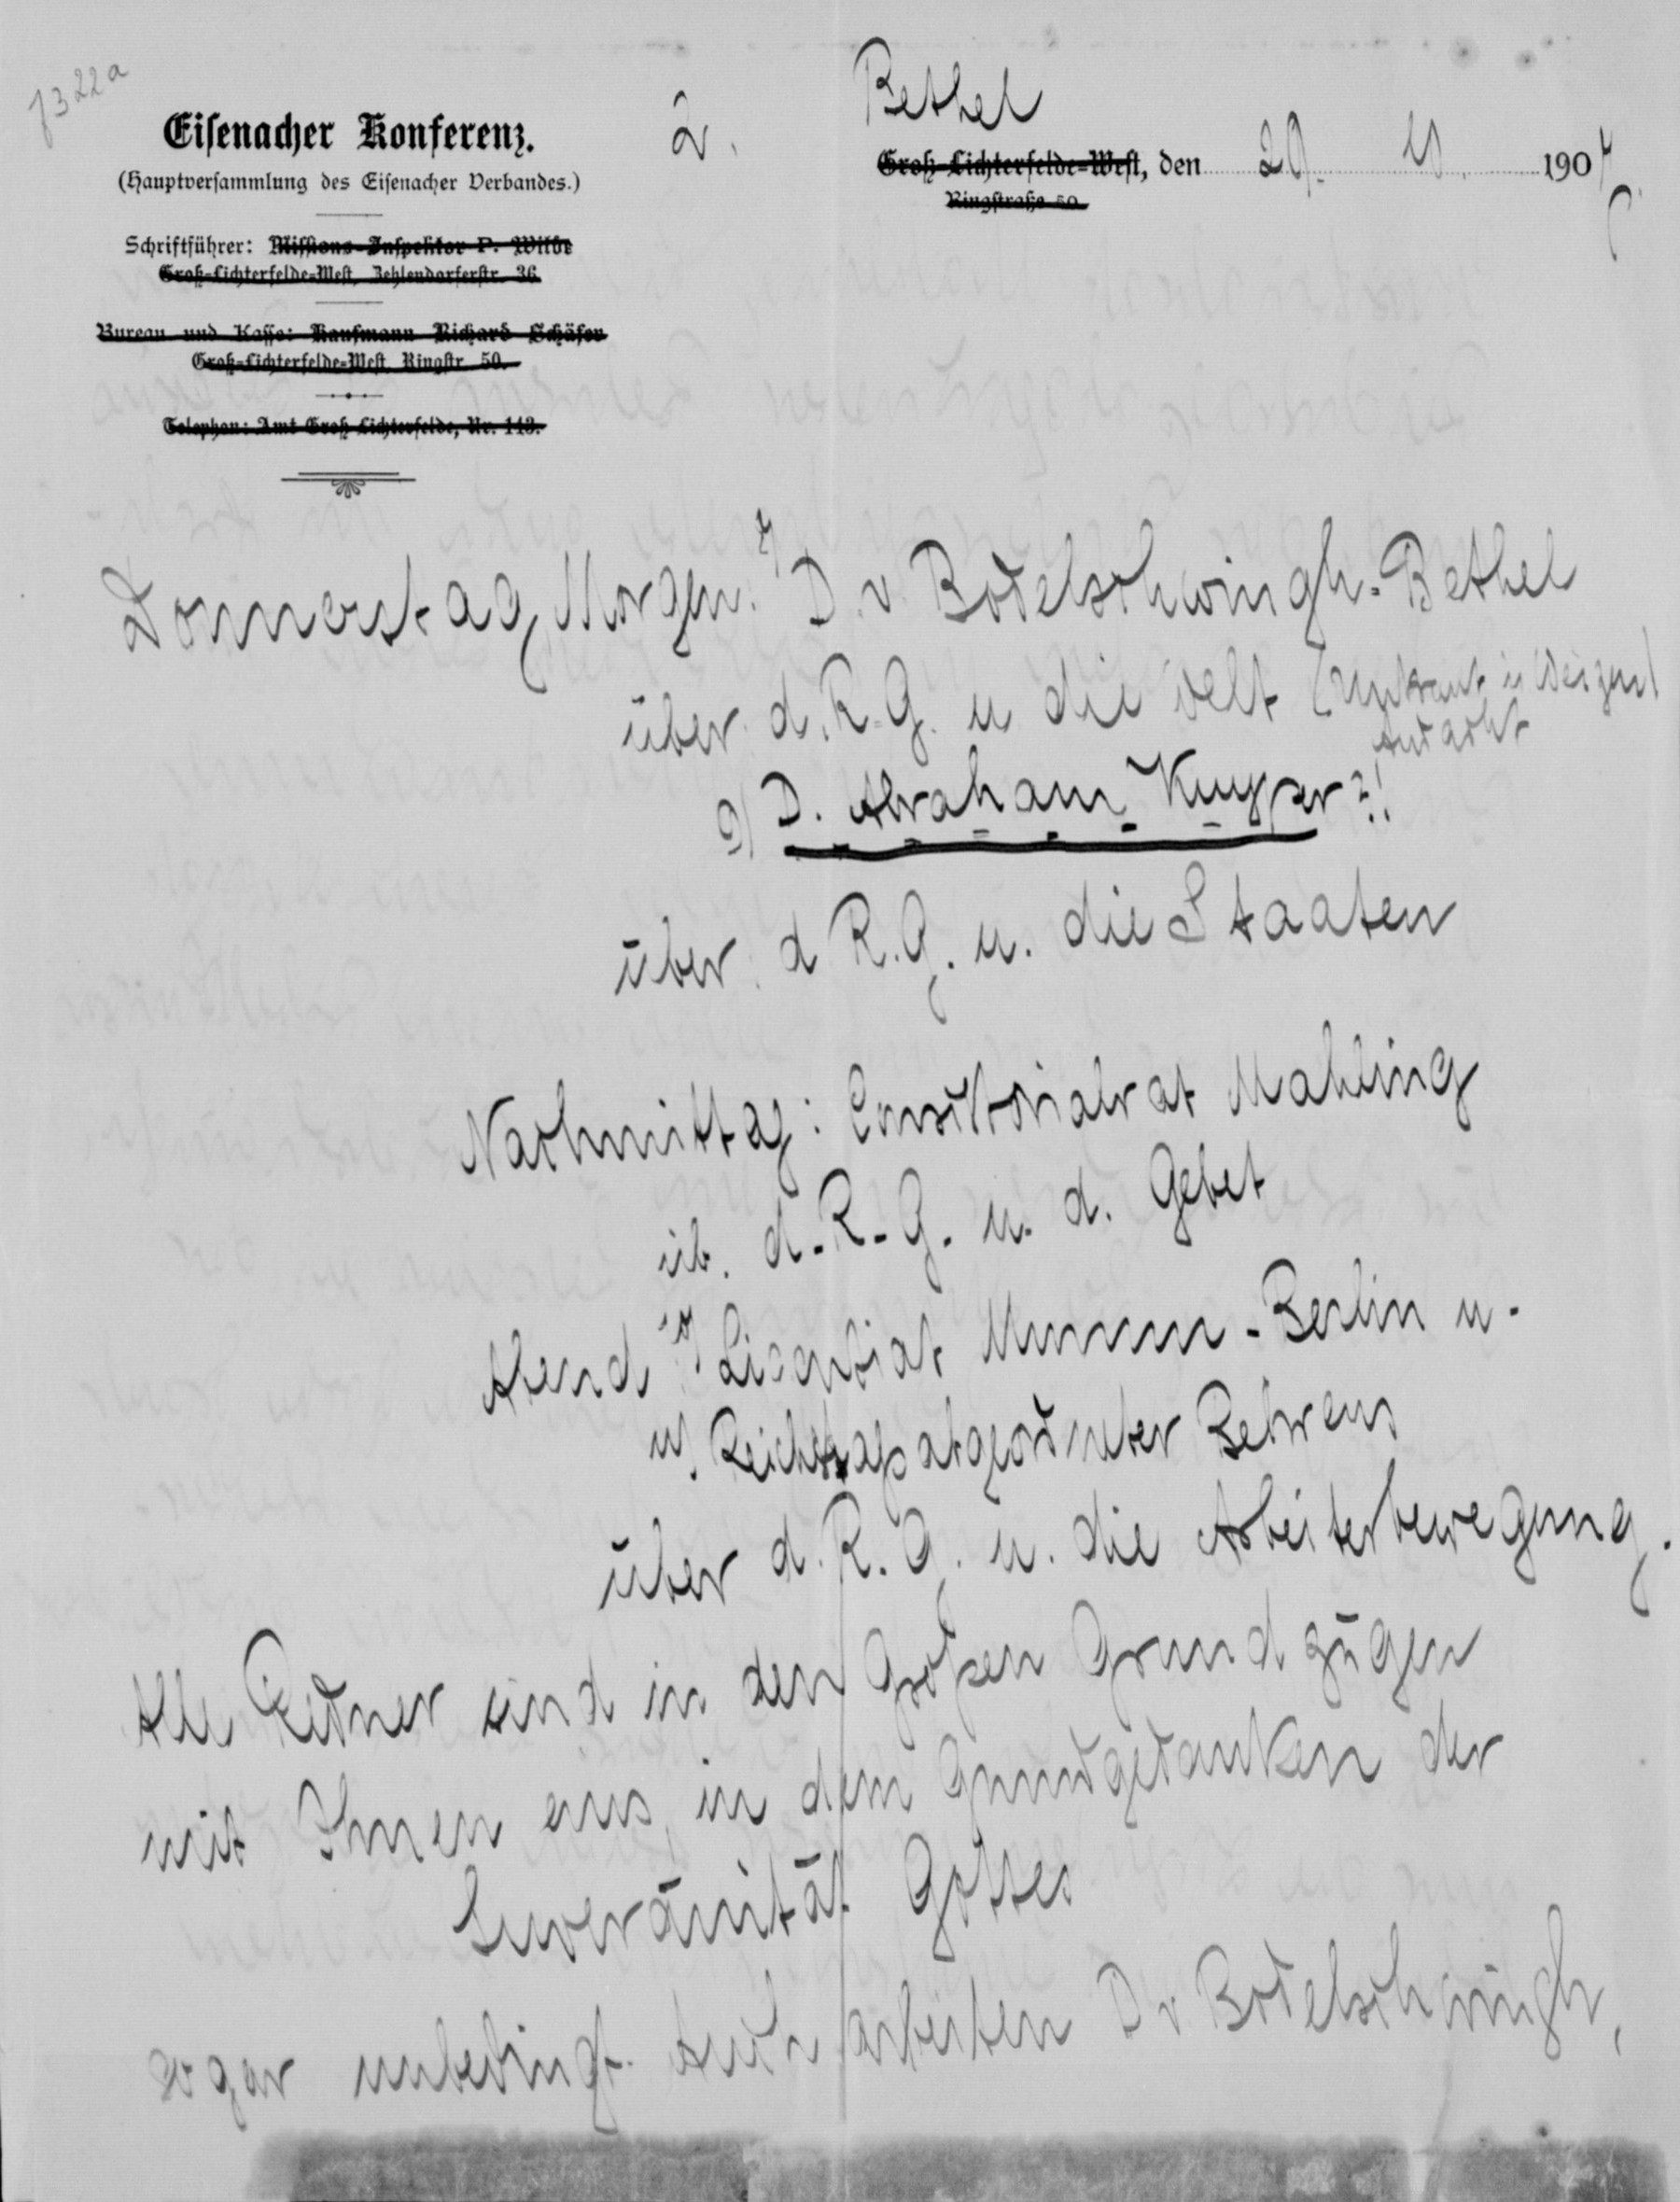 7322a
Eisenacher Konferenz.
(Hauptversammlung des Eisenacher Verbandes.)
Schriftführer: Missions-Inspektor P. Wilde
Groß-Lichterfelde-West, Zehlendorferstr. 36.
Bureau und Kasse: Kaufmann Richard Schäfer
Groß-Lichterfelde-West, Ringstr. 50.
Telephon: Amt Groß-Lichterfelde, Nr. 113.
2.
Bethel
Groß-Lichterfelde-West, den 29. 1907
Ringstraße 50
Donnerstag Morgen. D. v. Bodelschwingh-Bethel
über d. R. G. u die Welt (Unkraut u Weizen)
Andacht
9) D. Abraham Kuyper?!
über d R. G. u. die Staaten
Nachmittag: Consistorialrat Mahling
üb. d. R. G. u. d. Gebet
Abend 10) Licentiat Mumm-Berlin u.
11) Reichstagsabgeordneter Behrens
über d. R. G. u. die Arbeiterbewegung.
Alle Redner sind in den großen Grundzügen
mit Ihnen eins, in dem Grundgedanken der
Suveränität Gottes
sogar unbedingt. Auch arbeiten D v. Bodelschwingh,